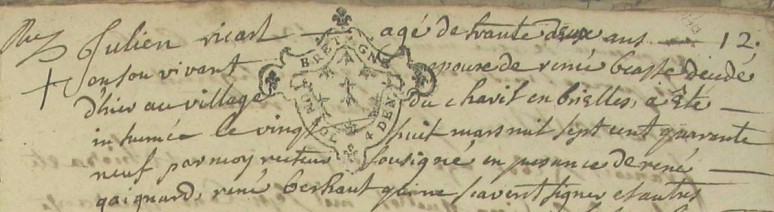 Julien ricast agé de trante deux ans 12.
en son vivant epoux de renée beasse decedé
d'hier au village du chavil en brielles, a été
inhumé le vingt huit mars mil sept cent quarante
neuf par moy recteur sousigné en presence de rené
gaignard, rené berhaut qui ne scavent signer et autres
BRETAGNE